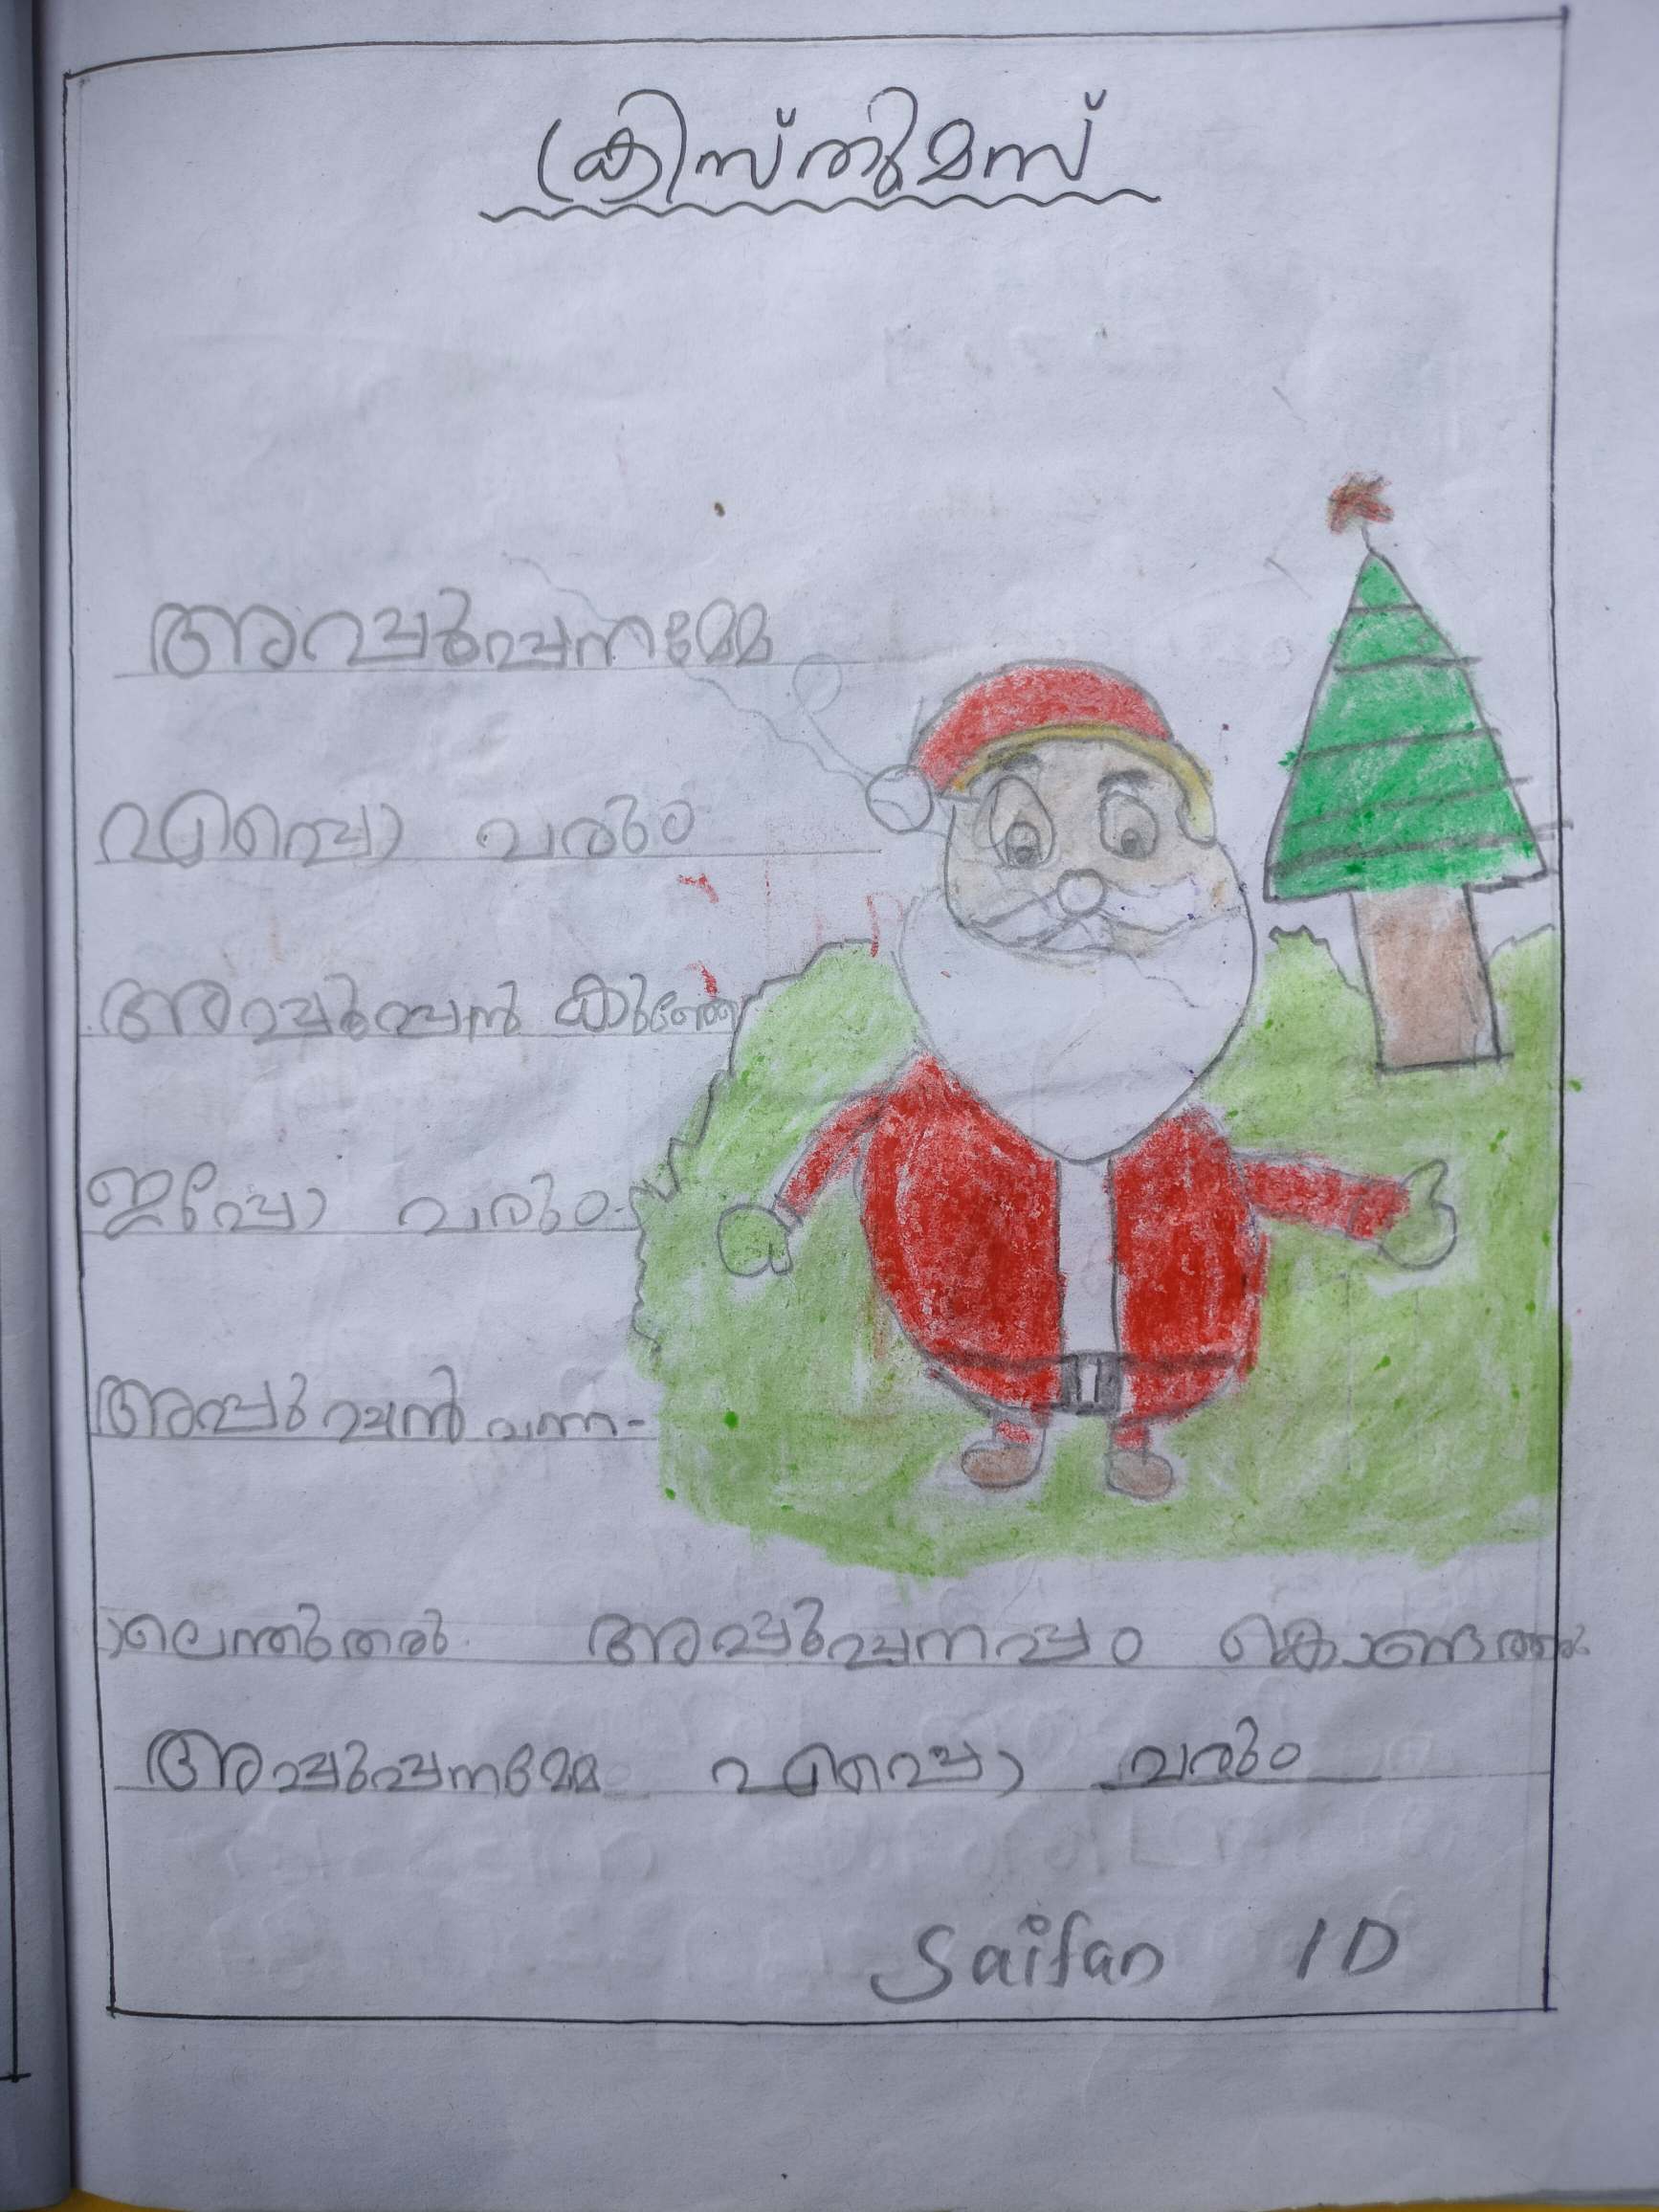 ക്രിസ്തുമസ്
അപ്പൂപ്പനമ്മേ
എപ്പൊ വരും
അപ്പൂപ്പൻ കുഞ്ഞേ
ഇപ്പോ വരും
അപ്പൂപ്പൻ വന്ന-
ാലെന്തുതരും അപ്പൂപ്പനപ്പം കൊണ്ടത്തരും
അപ്പൂപ്പനമ്മേ എപ്പൊ വരും
Saifan 1D